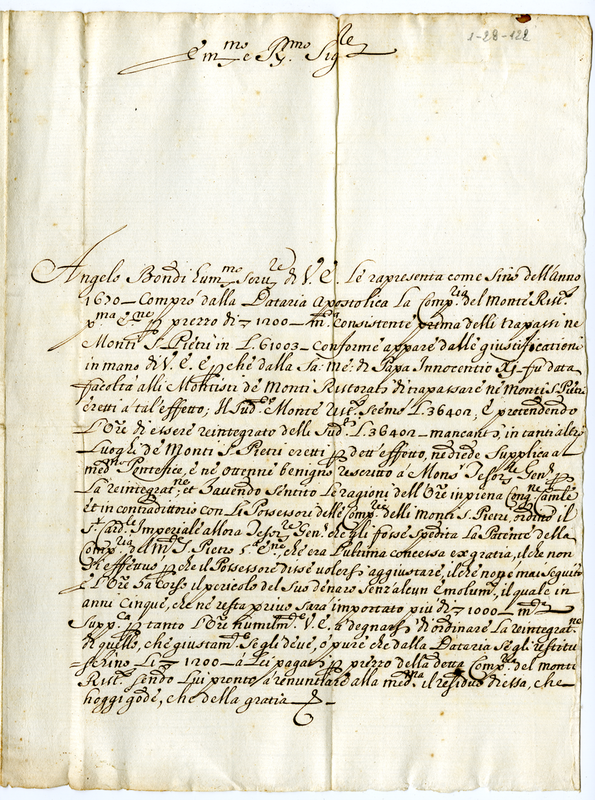 1-28-122
Em.mo e R.mo Sig.re
Angelo Bondi hum.mo seru.re di V. E. Le rapresenta come sino dell'Anno
1670 - Compro dalla Dataria Apostolica La Comp.ria del Monte Rist.
p.ma E.ne prezzo di 1200 - m.ta Consistente prima delli trapassi ne
Monti S. Pietri in L. 61003 - Conforme appare dalle giustificationi
in mano di V. E. E che dalla Sa: me: di Papa Innocentio XI fu data
facoltà alli Montisti de Monti Ristorati di trapassare ne Monti S. Pietri
eretti a tal'effetto; Il Sud.o Monte Rist. scemò L. 36402, E pretendendo
L'Ore di essere reintegrato delle Sud.e L. 36402 - mancanti, in tanti altri
Luoghi de Monti S. Pietri eretti dett'effetto, ne diede Supplica al
med.mo Pontefice, e ne ottenne benigno rescritto a Mons.r Tesor.re Gen.
La reintegrat.ne; et hauendo sentito Le ragioni dell'Ore in piena Cong.ne Camle
et in contradittorio con Li Possessori delle Comp.rie delli Monti S. Pietri, ordinò il
S. Card. Imperiale allora Tesor.re Gen. che gli fosse spedita La Patente della
Comp.ria del M. S. Pietro 5.a E.ne, che era L'ultima concessa ex gratia, il che non
si effettuò che il Possessore disse volersi aggiustare, il che non e mai seguito
e L'Ore Sa corso il pericolo del suo denaro senz'alcun Emolum.to, il quale in
anni Cinque, che ne resta priuo sarà importato più di 1000 - m.ta
Supp.ca tanto L'Ore humilm.e V. E. a degnarsi di ordinare La reintegrat.ne
di quello, che giustam.e se gli deue, o pure che dalla Dataria se gli restitu
=schino Li 1200 - a Lei pagati prezzo della detta Comp.ria del monti
Rist. sendo Lui pronto a renuntiare alla med.ma il residuo di essa, che
hoggi gode, che della gratia